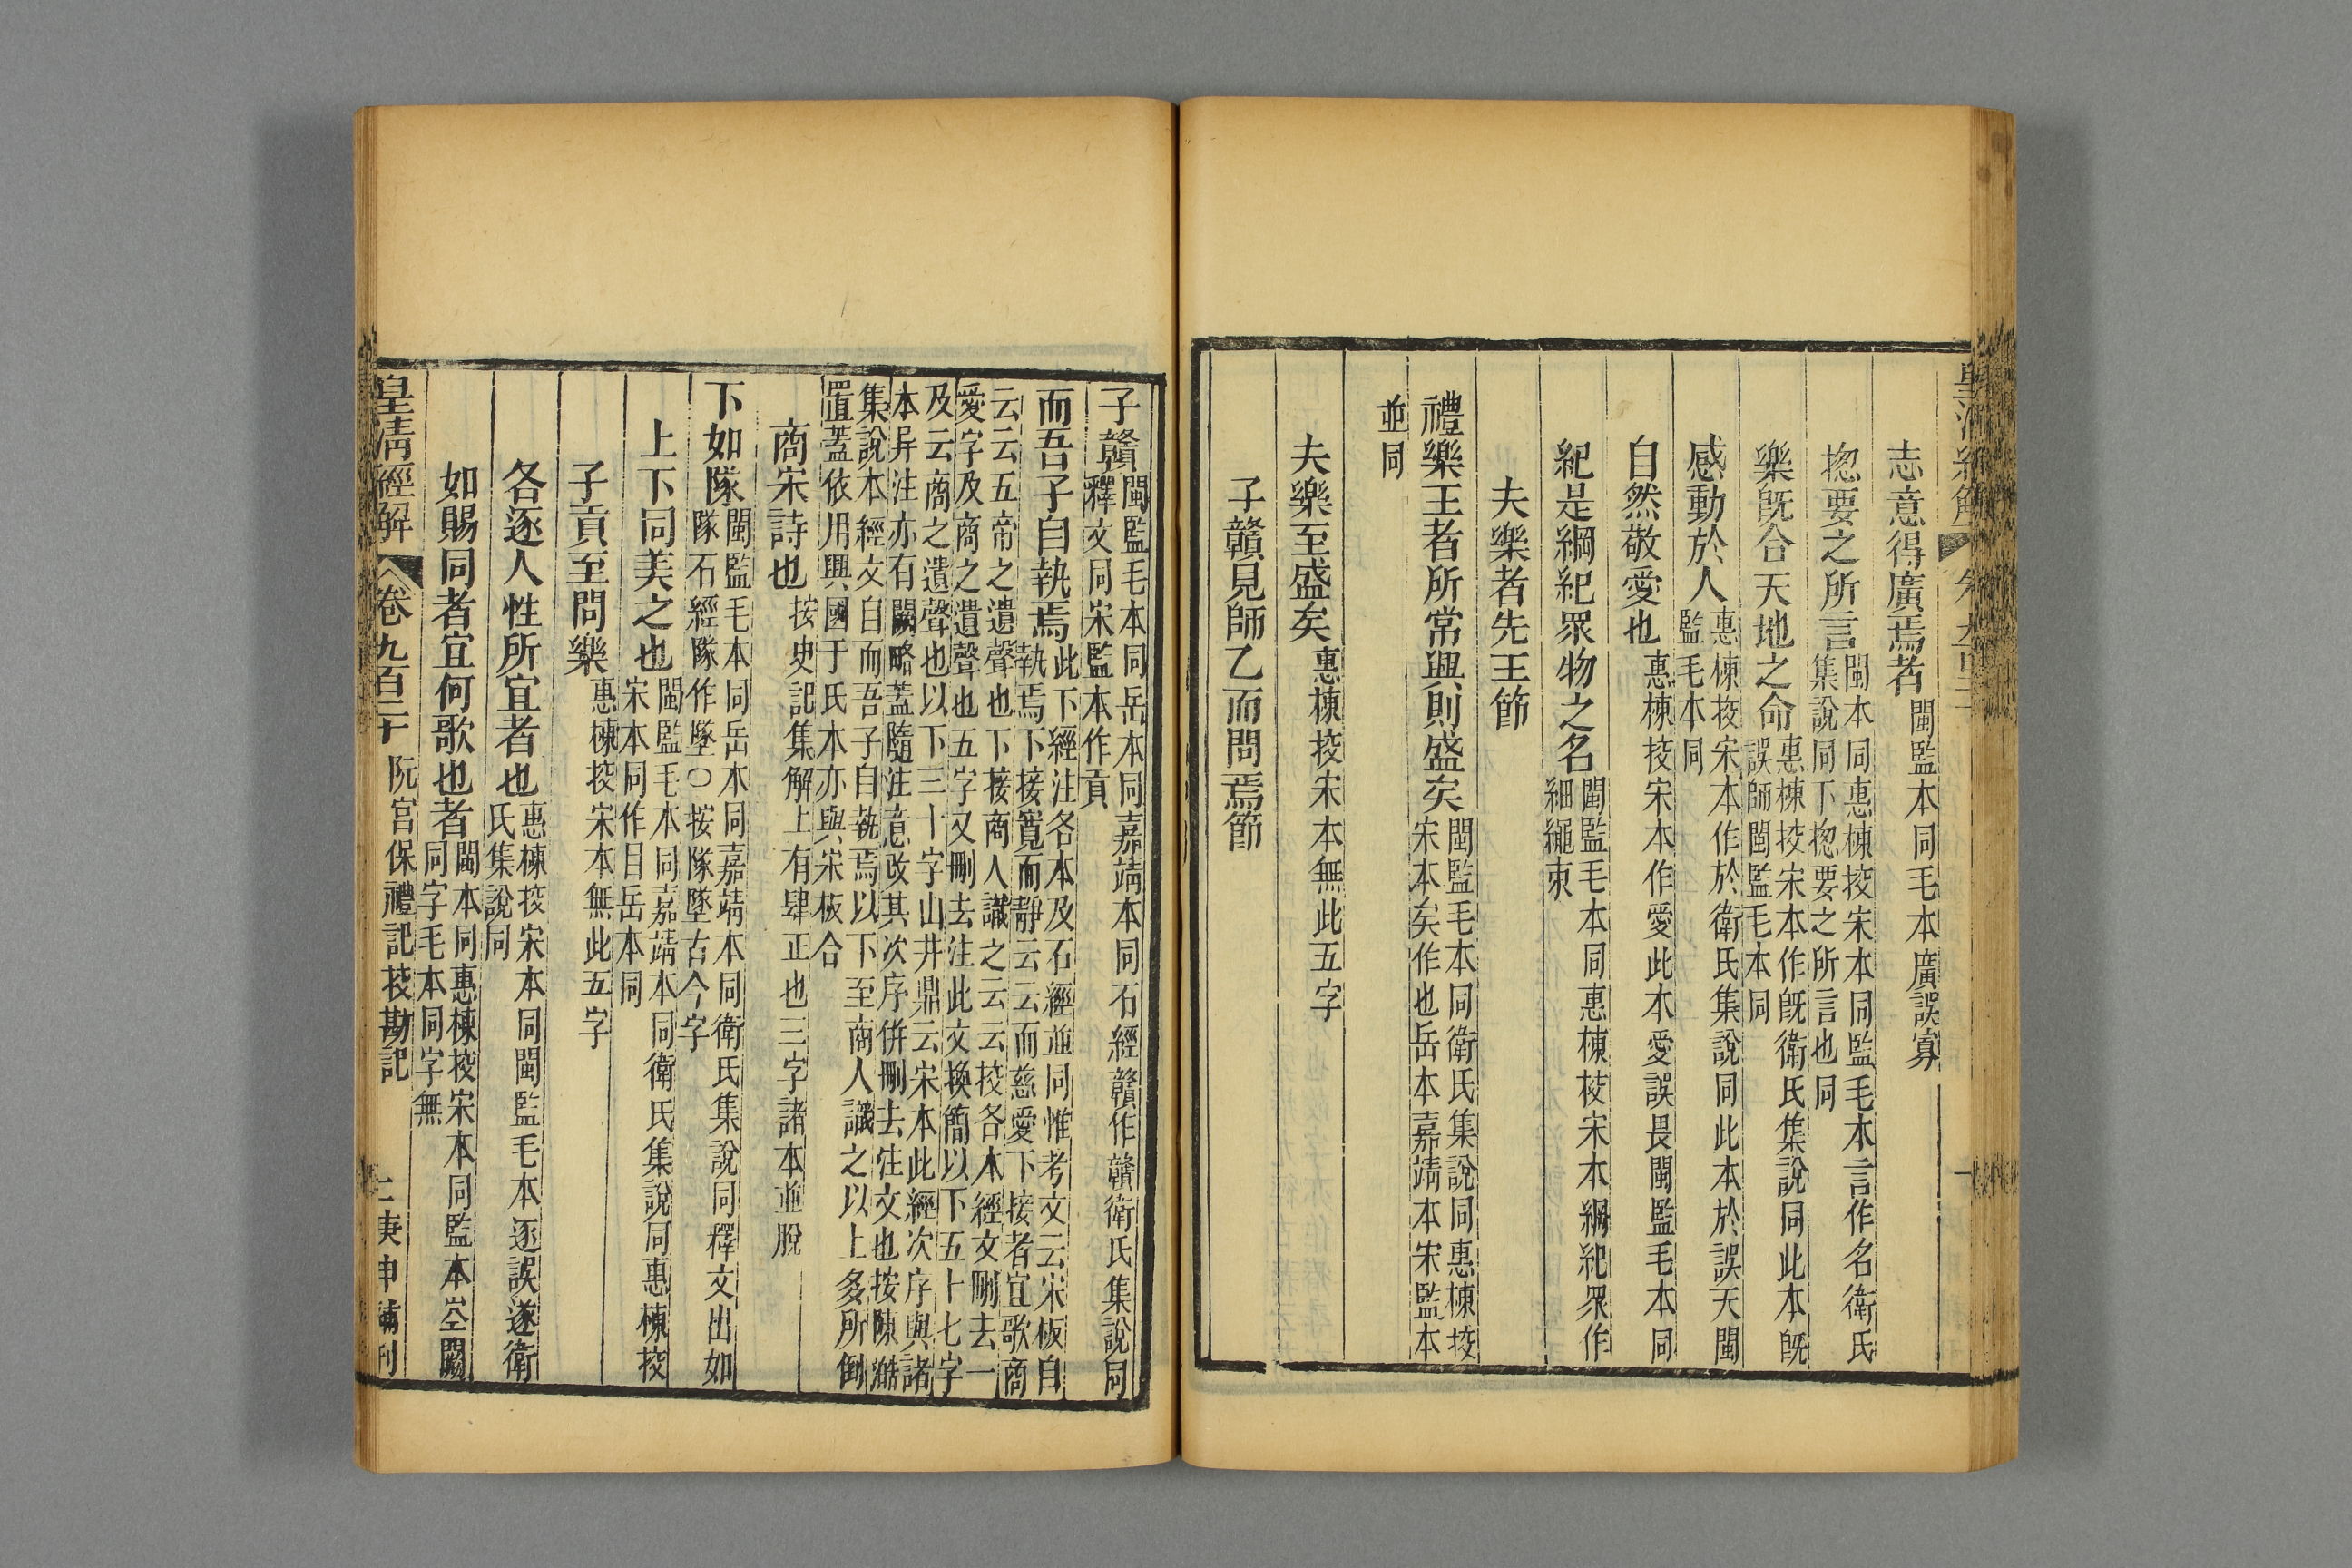 志意得廣焉者閩監本同毛本廣誤寡
揔要之所言閩本同惠棟挍宋本同監毛本言作名衛氏
集說同下揔要之所言也同
樂旣合天地之命惠棟挍宋本作旣衛氏集說同此本旣
誤師閩監毛本同
感動於人惠棟挍宋本作於衛氏集說同此本於誤天閩
監毛本同
自然敬愛也惠棟挍宋本作愛此本愛誤畏閩監毛本同
紀是綱紀眾物之名閩監毛本同惠棟挍宋本綱紀眾作
細繩束
夫樂者先王節
禮樂王者所常興則盛矣閩監毛本同衛氏集說同惠棟挍
宋本矣作也岳本嘉靖本宋監本
並同
夫樂至盛矣惠棟挍宋本無此五字
子贛見師乙而問焉節
子贛閩監毛本同岳本同嘉靖本同石經贛作贑衛氏集說同
釋文同宋監本作貢
而吾子自執焉此下經注各本及石經並同惟考文云宋板自
執焉下接寬而靜云云而慈愛下接者宜歌商
云云五帝之遺聲也下接商人識之云云挍各本經文刪去一
愛字及商之遺聲也五字又刪去注此文換簡以下五十七字
及云商之遺聲也以下三十字山井鼎云宋本此經次序與諸
本异注亦有闕略蓋隨注意改其次序併刪去注文也按陳澔
集說本經文自而吾子自執焉以下至商人識之以上多所倒
置蓋依用興國于氏本亦與宋板合
商宋詩也按史記集解上有肆正也三字諸本並脫
下如隊閩監毛本同岳本同嘉靖本同衛氏集說同釋文出如
隊石經隊作墜○按隊墜古今字
上下同美之也閩監毛本同嘉靖本同衛氏集說同惠棟挍
宋本同作目岳本同
子貢至問樂惠棟挍宋本無此五字
各逐人性所宜者也惠棟挍宋本同閩監毛本逐誤遂衛
氏集說同
如賜同者宜何歌也者閩本同惠棟挍宋本同監本空闕
同字毛本同字無
皇清經解 卷九百二十 阮宮保禮記挍勘記 庚申補刊